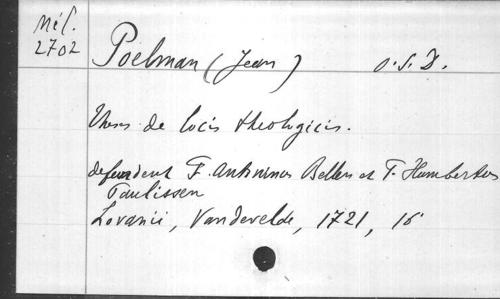 Mél.
2702
Poelman (Jean) o.s.D.
Theses de locis theologicis.
defendent F. Antoninus Bellen et F. Humbertus
Paulissen
Lovanii, Vandevelde, 1721, 16°